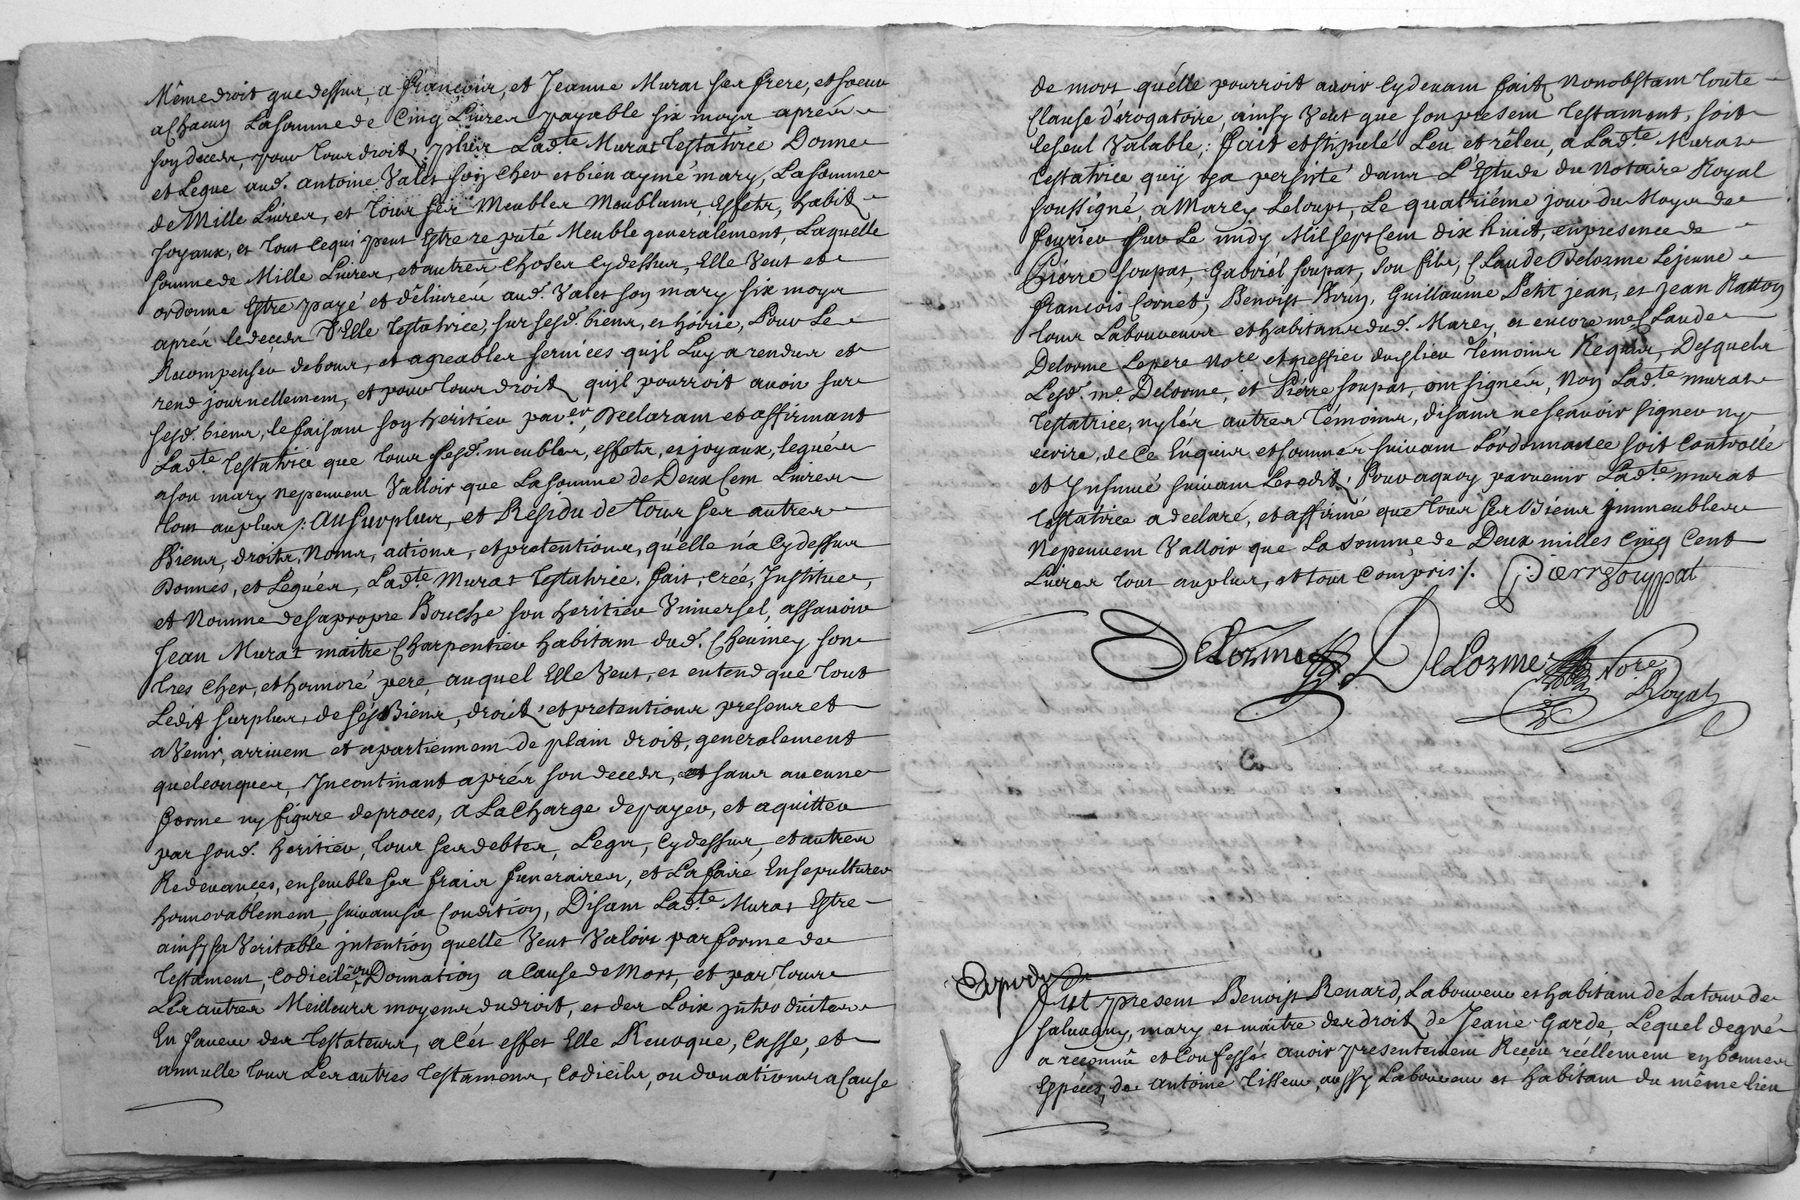 Même droit que dessus, a françois, et Jeanne Murat ses frere, et soeur
a Chacun La somme de Cinq Livres payable six moys aprés
son deceds, pour tout droit, plus Lad.te Murat testatrice Donne
et Legue aud. antoine Valet son cher et bien aymé mary, La somme
de Mille Livres, et tous ses Meubles Meublans, Effets, habits
Joyaux, et tout ce qui peut Estre reputé Meuble generalement, Laquelle
somme de Mille Livres, et autres choses cy dessus, Elle Veut et
ordonne Estre payé et délivrés aud. Valet son mary six moys
aprés le deceds d'Elle testatrice, sur sesd. biens, et hoirie, Pour Le
Recompenser de bons, et agreables services qu'il Luy a rendus et
rend journellement, et pour tous droits qu'il pourroit avoir sur
sesd. biens, le faisant son heritier par.er, Declarant et affirmant
Lad.te testatrice que tous sesd. meubles, effets, et joyaux, legués
a son mary ne peuvent Valloir que La somme de Deux Cent Livres
tout au plus; Au Surplus, et Résidu de tous ses autres
Biens, droits, Noms, actions, et pretentions, qu'elle n'a cy dessus
Donnés, et Légués, Lad.te Murat testatrice, fait, créé, Institue,
et Nomme de sa propre Bouche son heritier Vniversel, assavoir
Jean Murat maitre Charpentier habitant dud. Cheviney son
tres Cher, et honnoré pere, auquel Elle Veut, et entend que tout
Ledit surplus, de ses Biens, droits, et pretentions presens et
a Venir, arrivent et apartiennent de plain droit, generalement
quelconques, Incontinant aprés son deceds, et sans aucune
forme ny figure de proces, a La Charge de payer, et aquitter
par sond. heritier, tous ses debtes, Legs, cy dessus, et autres
Redevances, ensemble ses frais funeraires, et La faire Ensepulturer
honnorablement, suivant sa Condition, Disant Lad.te Murat Estre
ainsy sa Veritable jntention quelle Veut Valoir par forme de
testament, Codicile, ou Donnation a Cause de Mort, et par tous
Les autres Meilleurs moyens du droit, et des Loix jntroduites
En faveur des testateurs, a Cés effet Elle Revoque, Casse, et
annulle tous Les autres testamens, Codicils, ou donations a Cause
de mort quélle pourroit avoir Cy devant fait, Nonobstant toute
Clause dérogatoire, ainsy Veut que son present testament, soit
le seul Valable; fait et stipulé Leu et réleu, a Lad.te Murat
testatrice quy y a persisté dans L'Estude du Notaire Royal
soussigné, a Marcy Leloups, Le quatriéme jour du Moys de
fevrier sur Le midy Mil sept Cent dix huit, en presence de
Piérre soupat, Gabriél soupat, son fils, Claude Delorme Lejeune
françois Cornet, Benoist Birin, Guillaume Petit jean, et jean Ratton
tous Laboureurs et habitans dud. Marcy, et encore me Claude
Delorme Le pere Nore et greffier dud. lieu témoins Requis, Desquels
Lesd. me Delorme, et Piérre soupat, ont signés, Non Lad.te murat
testatrice, ny lés autres témoins, disans ne scavoir signer ny
écrire, de Ce Enquis et sommés suivant L'ordonnance soit Controllé
et Insinué suivant Les edits; Pour aquoy parvenir Lad.te murat
testatrice a declaré, et affirmé que tous ses Biens Immeubles
ne peuvent Valloir que La somme de Deux milles Cinq Cent
Livres tout au plus, et tout Compris /. Pierre Souppat
Delorme Delorme Nore
Royal
fut present Benoist Renard, Laboureur et habitant de La tour de
salvagny, mary et maître des droits de Jeane Garde, Lequel de gré
a reconnu et Confessé avoir presentement Receu réellement en bonnes
Especes, de antoine tisseur, aussy Laboureur et habitant du même lieu